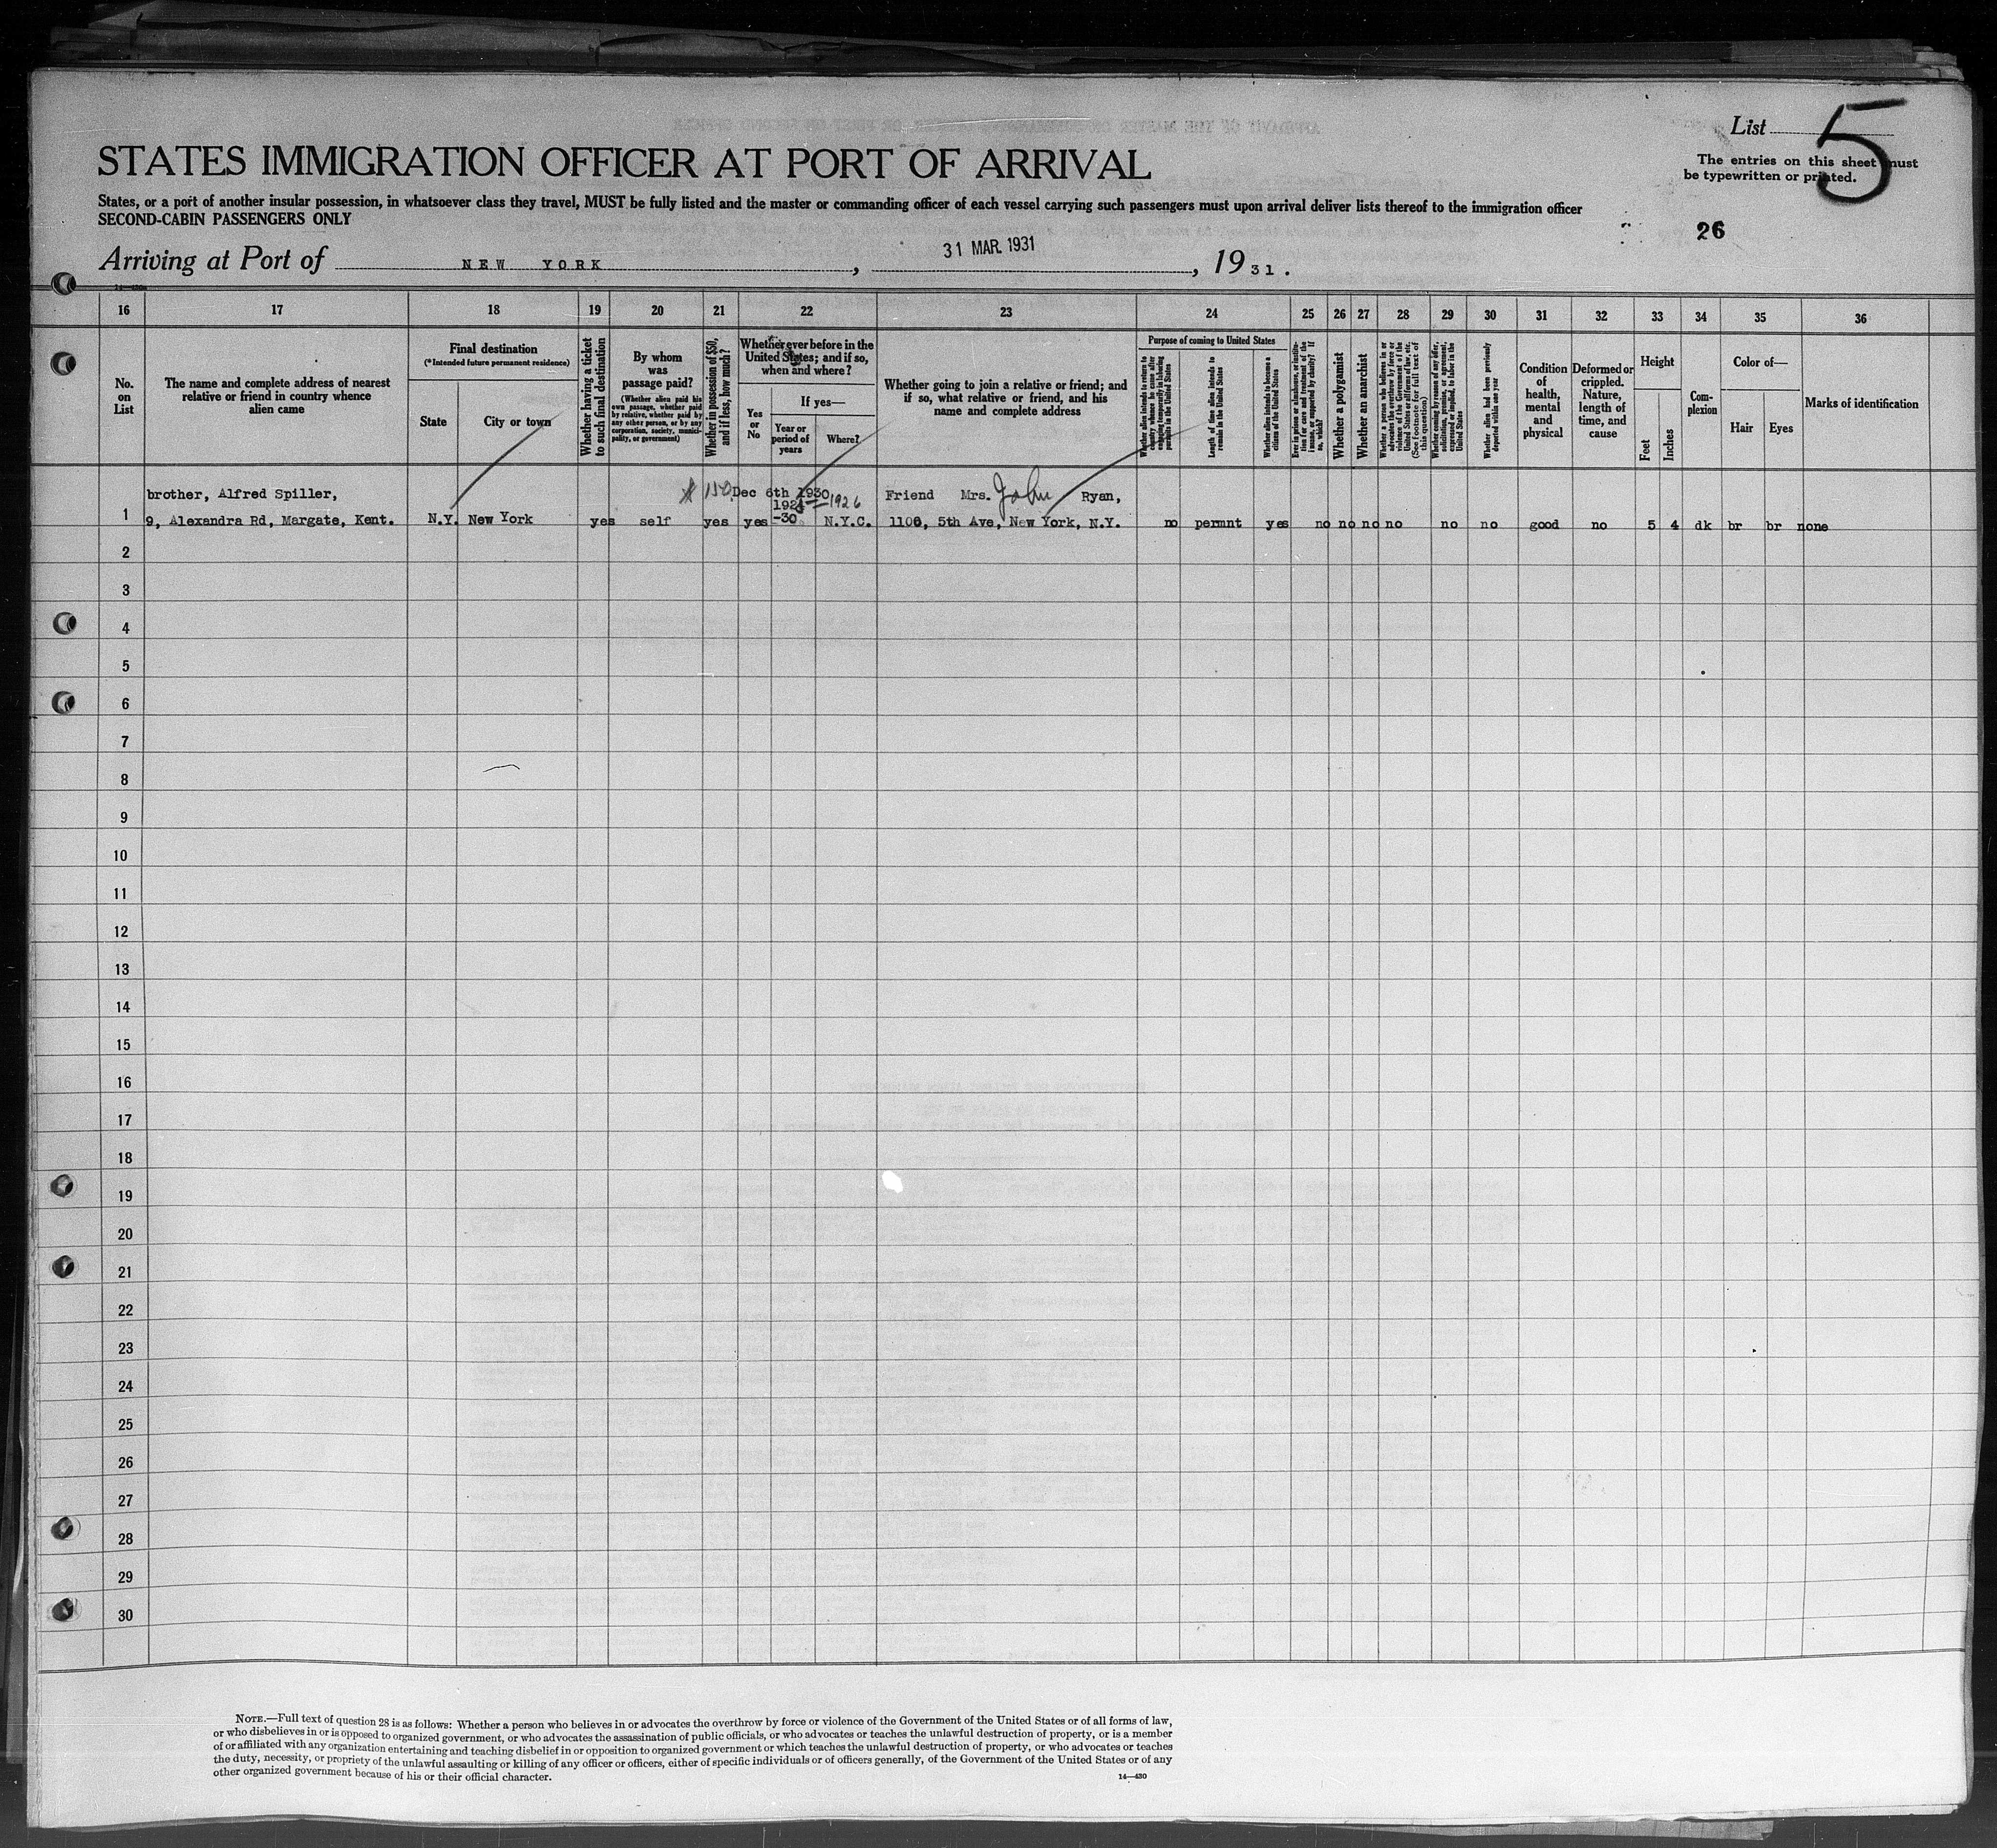 List 5
STATES IMMIGRATION OFFICER AT PORT OF ARRIVAL
The entries on this sheet must
be typewritten or printed.
States, or a port of another insular possession, in whatsoever class they travel, MUST be fully listed and the master or commanding officer of each vessel carrying such passengers must upon arrival deliver lists thereof to the immigration officer
SECOND-CABIN PASSENGERS ONLY
26
Arriving at Port of NEW YORK, 31 MAR. 1931, 1931.
16 17 18 19 20 21 22 23 24 25 26 27 28 29 30 31 32 33 34 35 36
No.
on
List
The name and complete address of nearest
relative or friend in country whence
alien came
Final destination
(*Intended future permanent residence)
State
City or town
Whether having a ticket
to such final destination
By whom
was
passage paid?
(Whether alien paid his
own passage, whether paid
by relative, whether paid by
any other person, or by any
corporation, society, munici-
pality, or government)
Whether in possession of $50,
and if less, how much?
Whether ever before in the
United States; and if so,
when and where?
Yes
or
No
If yes—
Year or
period of
years
Where?
Whether going to join a relative or friend; and
if so, what relative or friend, and his
name and complete address
Purpose of coming to United States
Whether alien intends to return to
country whence he came after
engaging temporarily in laboring
pursuits in the United States
Length of time alien intends to
remain in the United States
Whether alien intends to become a
citizen of the United States
Ever in prison or almshouse, or institu-
tion for care and treatment of the
insane, or supported by charity? If
so, which?
Whether a polygamist
Whether an anarchist
Whether a person who believes in or
advocates the overthrow by force or
violence of the Government of the
United States or all forms of law, etc.
(See footnote for full text of
this question)
Whether coming by reason of any offer,
solicitation, promise, or agreement,
expressed or implied, to labor in the
United States
Whether alien had been previously
deported within one year
Condition
of
health,
mental
and
physical
Deformed or
crippled.
Nature,
length of
time, and
cause
Height
Feet
Inches
Com-
plexion
Color of—
Hair
Eyes
Marks of identification
brother, Alfred Spiller, $150 Dec 6th 1930 Friend Mrs. John Ryan,
1926
1 9, Alexandra Rd, Margate, Kent. N.Y. New York yes self yes yes -30 N.Y.C. 1106, 5th Ave, New York, N.Y. no permnt yes no no no no no no good no 5 4 dk br br none
2
3
4
5
6
7
8
9
10
11
12
13
14
15
16
17
18
19
20
21
22
23
24
25
26
27
28
29
30
NOTE.—Full text of question 28 is as follows: Whether a person who believes in or advocates the overthrow by force or violence of the Government of the United States or of all forms of law,
or who disbelieves in or is opposed to organized government, or who advocates the assassination of public officials, or who advocates or teaches the unlawful destruction of property, or is a member
of or affiliated with any organization entertaining and teaching disbelief in or opposition to organized government or which teaches the unlawful destruction of property, or who advocates or teaches
the duty, necessity, or propriety of the unlawful assaulting or killing of any officer or officers, either of specific individuals or of officers generally, of the Government of the United States or of any
other organized government because of his or their official character.
14—430